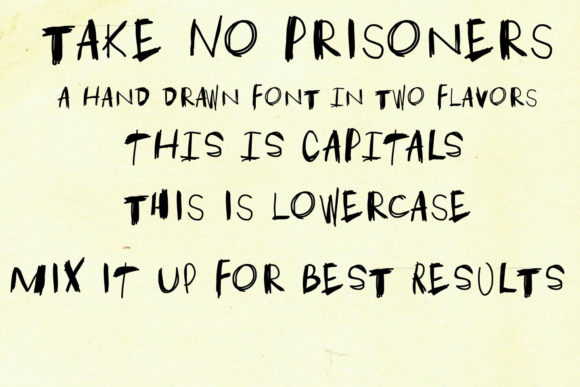 TAKE NO PRISONERS
A HAND DRAWN FONT IN TWO FLAVORS
THIS IS CAPITALS
THIS IS LOWERCASE
MIX IT UP FOR BEST RESULTS